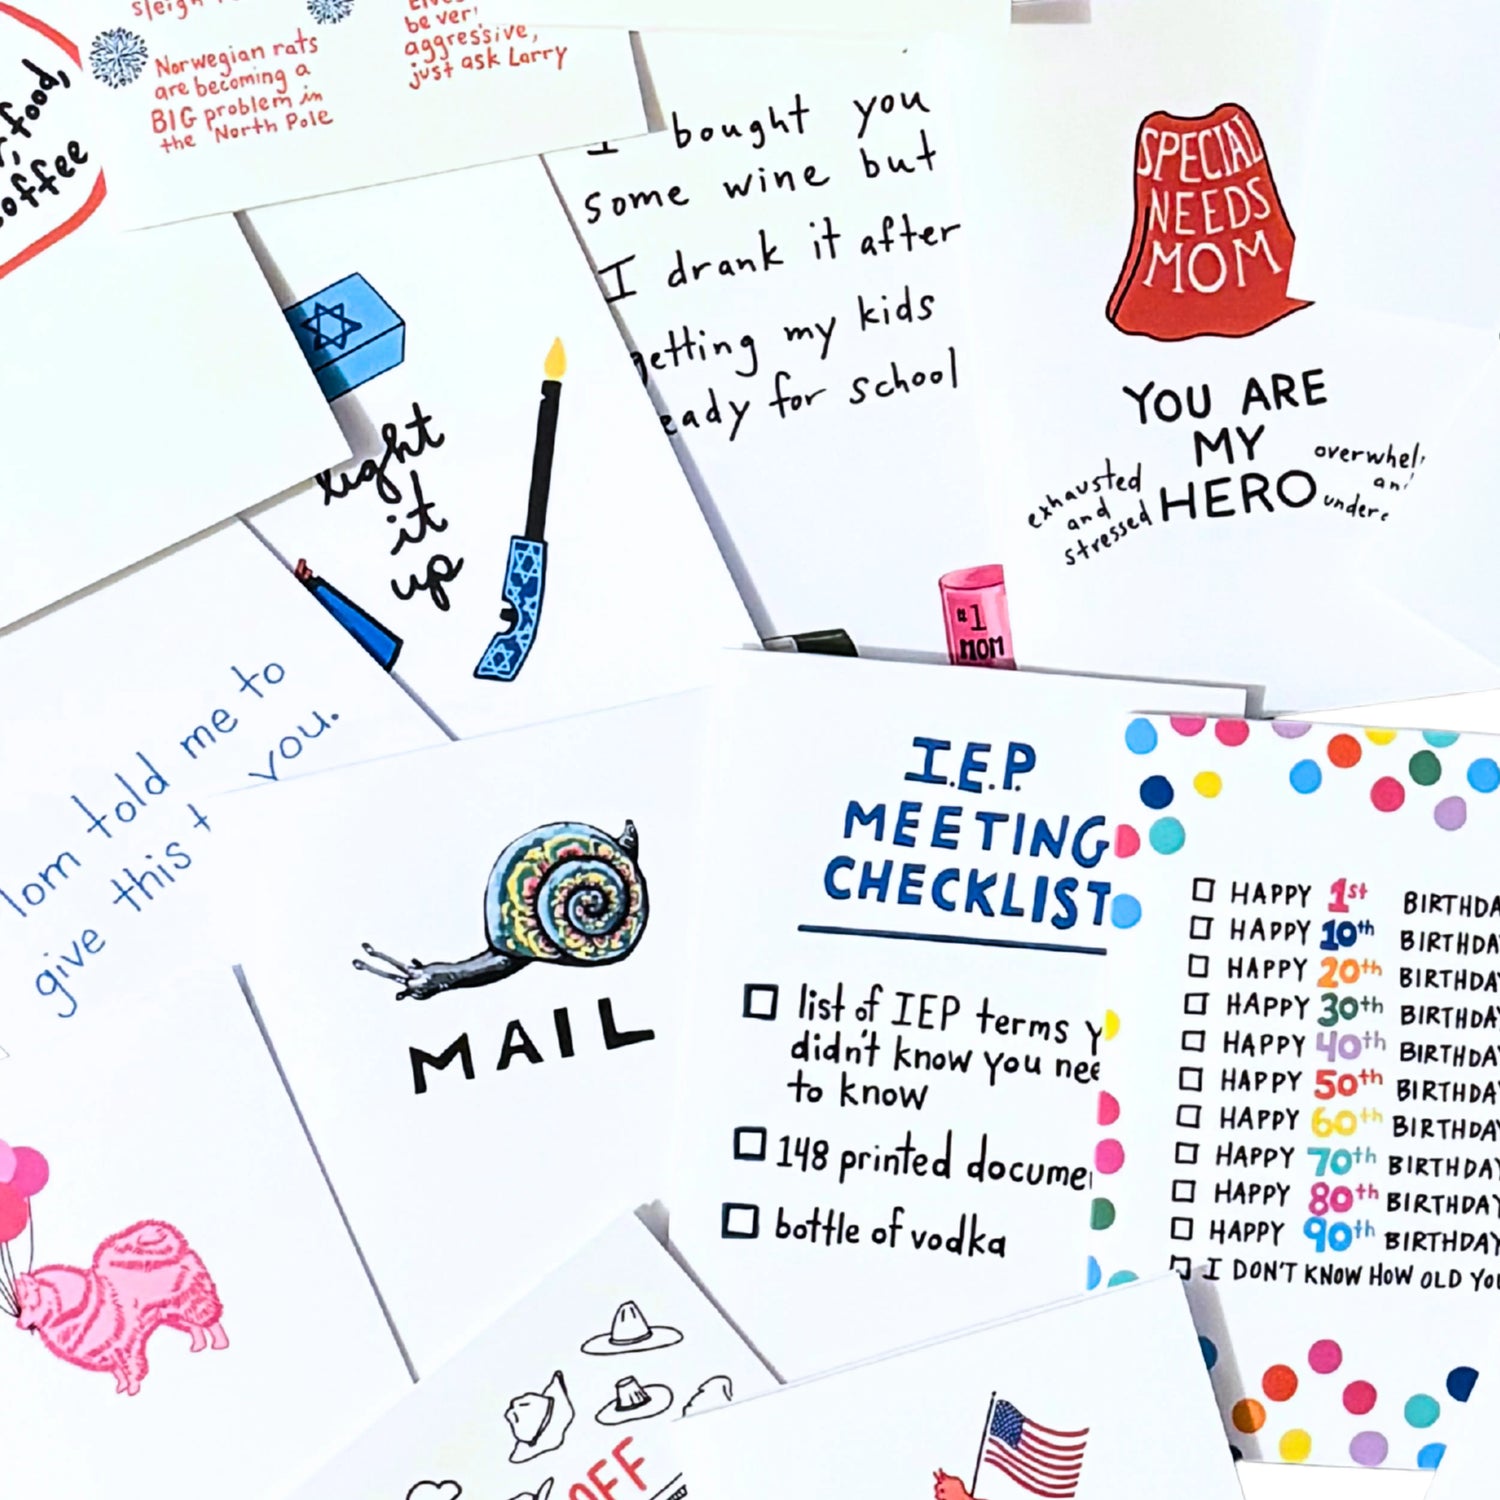 Norwegian rats
are becoming a
BIG problem in
the North Pole
aggressive,
just ask Larry
food,
coffee
light
it
up
I bought you
some wine but
I drank it after
getting my kids
ready for school
SPECIAL
NEEDS
MOM
YOU ARE
MY
HERO
exhausted
and
stressed
#1
MOM
Mom told me to
give this t you.
MAIL
I.E.P.
MEETING
CHECKLIST
list of IEP terms y
didn't know you nee
to know
148 printed docume
bottle of vodka
HAPPY 1st BIRTHDA
HAPPY 10th BIRTHDA
HAPPY 20th BIRTHDA
HAPPY 30th BIRTHDA
HAPPY 40th BIRTHDA
HAPPY 50th BIRTHDA
HAPPY 60th BIRTHDA
HAPPY 70th BIRTHDA
HAPPY 80th BIRTHDAY
HAPPY 90th BIRTHDAY
I DON'T KNOW HOW OLD YOU
OFF